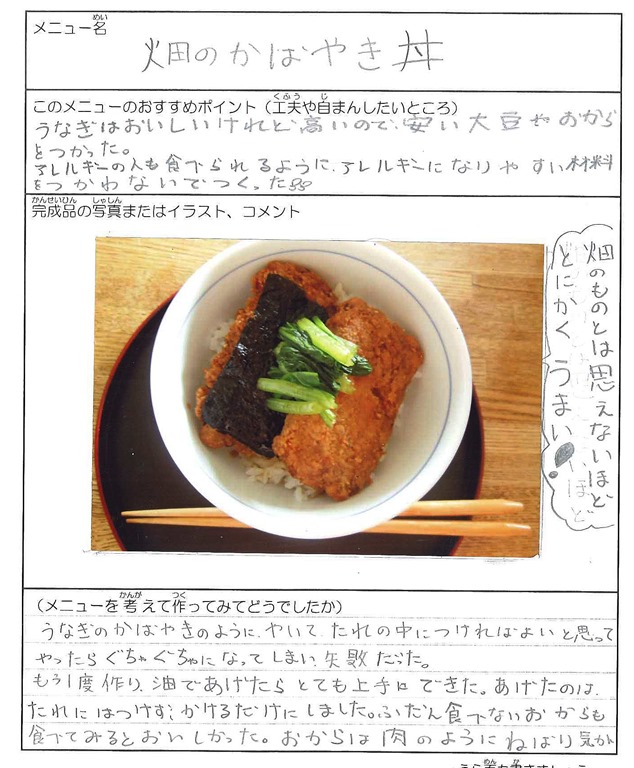 メニュー名
畑のかばやき丼
このメニューのおすすめポイント（工夫や自まんしたいところ）
うなぎはおいしいけれど、高いので、安い大豆やおから
をつかった。
アレルギーの人も食べられるように、アレルギーになりやすい材料
をつかわないでつくった
完成品の写真またはイラスト、コメント
畑のものとは思えないほど
とにかくうまい!
（メニューを考えて作ってみてどうでしたか）
うなぎのかばやきのように、やいて、たれの中につければよいと思って
やったらぐちゃぐちゃになってしまい、失敗だった。
もう1度作り、油であげたらとても上手にできた。あげたのは、
たれにはつけず、かけるだけにしました。ふだん食べないおからも
食べてみるとおいしかった。おからは肉のようにねばり気が